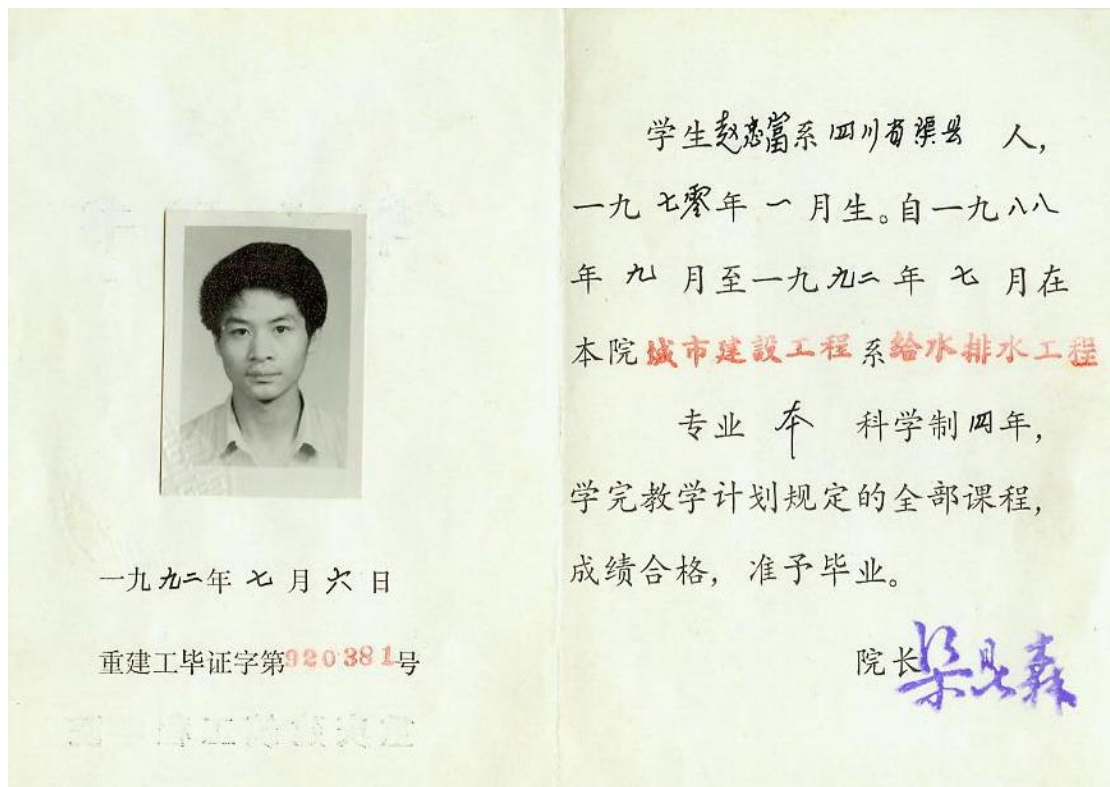 一九九二年七月六日
重建工毕证字第920381号
学生赵忠富系四川省渠县 人,
一九七零年一月生。自一九八八
年九月至一九九二年七月在
本院城市建設工程系给水排水工程
专业 本 科学制四年,
学完教学计划规定的全部课程,
成绩合格, 准予毕业。
院长